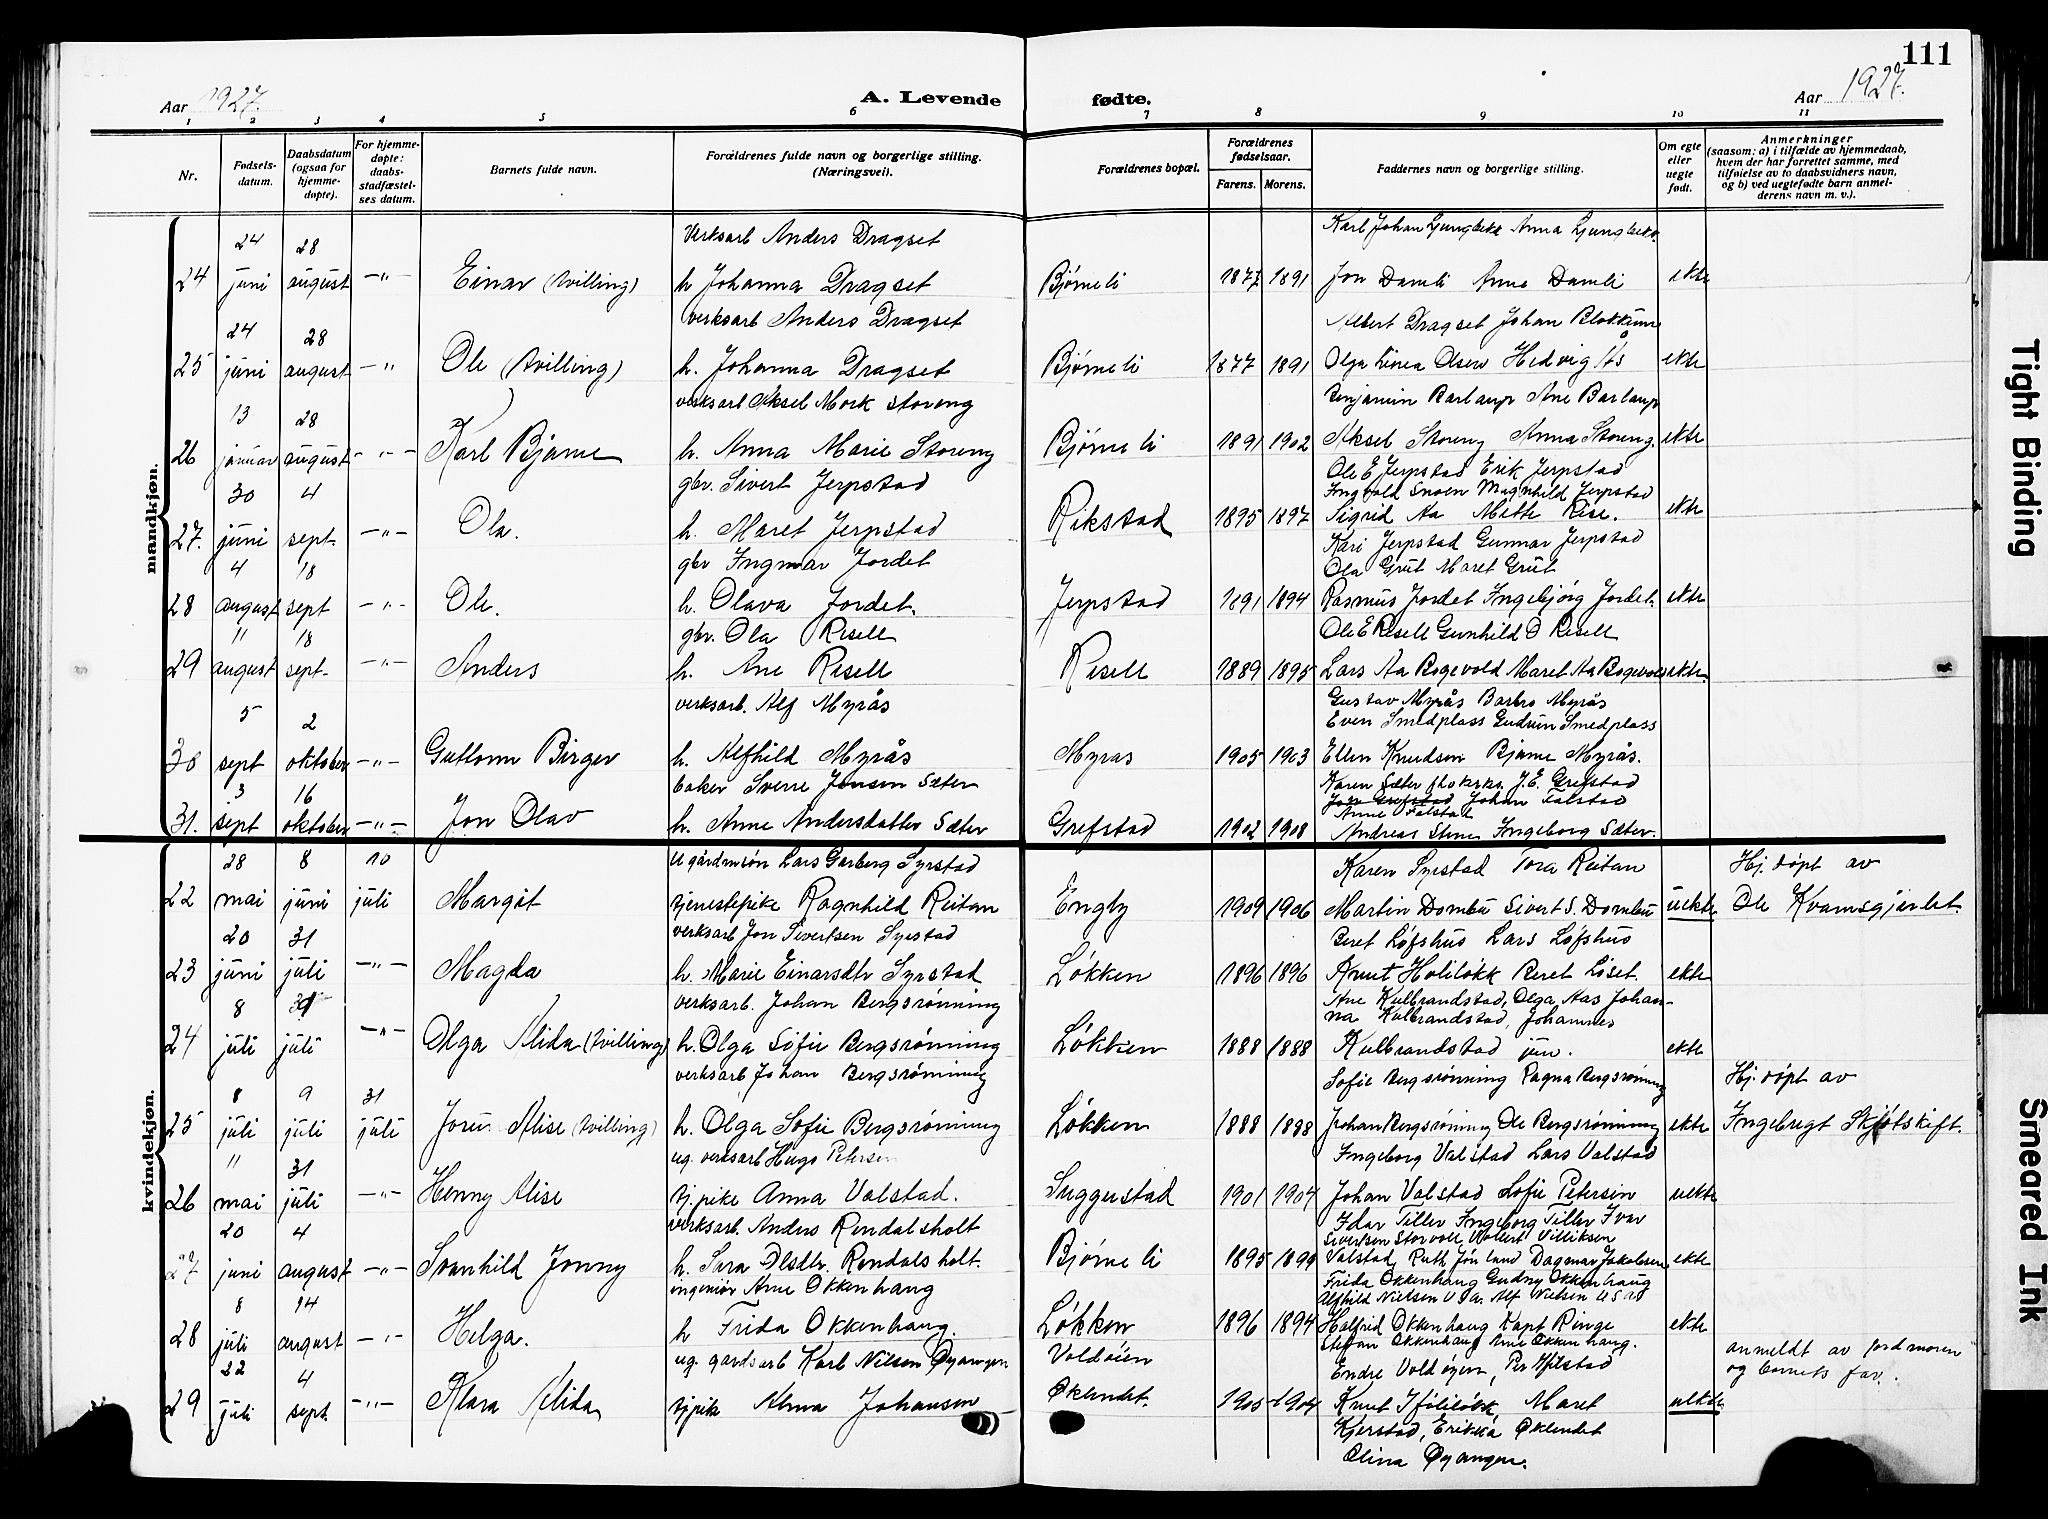 111
Aar 1927. A. Levende fødte. Aar 1927.
1 2 3 4 5 6 7 8 9 10 11
Nr. Fødsels-datum. Daabsdatum (ogsaa for hjemme-døpte). For hjemme-døpte: daabs-stadfæstel-ses datum. Barnets fulde navn. Forældrenes fulde navn og borgerlige stilling. (Næringsvei). Forældrenes bopæl. Forældrenes fødselsaar. Farens. Morens. Faddernes navn og borgerlige stilling. Om egte eller uegte født. Anmerkninger (saasom: a) i tilfælde av hjemmedaab, hvem der har forrettet samme, med tilføielse av to daabsvidners navn, og b) ved uegtefødte barn anmel-derens navn m. v.).
mandkjøn.
24 28 Verksarb Anders Dragset Karl Johan Ljungbekk Anna Ljungbekk.
24 juni august -"- Einar (tvilling) h Johanna Dragset Bjørneli 1877 1891 Jon Damli Anne Damli ekte
24 28 verksarb Anders Dragset Albert Dragset Johan Blokkum
25 juni august -"- Ole (tvilling) h. Johanna Dragset Bjørneli 1877 1891 Olga Linea Olsen Hedvig Ås ekte
13 28 verksarb Aksel Mork Storeng Benjamin Barlaup Ane Barlaup
26 januar august -"- Karl Bjarne h. Anna Marie Storeng Bjørneli 1891 1902 Aksel Storeng Anna Storeng. ekte
30 4 gbr. Sivert Jerpstad Ole E Jerpstad Erik Jerpstad
Ingvald Snoen Magnhild Jerpstad
27. juni sept. -"- Ola. h. Maret Jerpstad Rikstad 1895 1897 Sigrid Aa Mette Rise. ekte
4 18 gbr Ingmar Jordet Kari Jerpstad Gunnar Jerpstad
Ola Grut Maret Grut
28 august sept -"- Ole. h. Olava Jordet. Jerpstad 1891 1894 Rasmus Jordet Ingebjørg Jordet. ekte
11 18 gbr. Ola Resell Ole E Resell Gunhild O Resell
29 august sept. -"- Anders h. Ane Resell Resell 1889 1895 Lars Aa Bogevold Maret Aa Bogevold ekte.
5 2 verksarb. Alf Myrås Gustav Myrås Barbro Myrås
Even Smedplass Gudrun Smedplass
30 sept oktober -"- Guttorm Birger h. Alfhild Myrås Myras 1905 1903 Ellen Knudsen Bjarne Myrås.
3 16 baker Sverre Jensen Sæter Karen Sæter J. E. Grefstad
Jon Grefstad Johan Falstad
Anne Falstad
31. sept oktober -"- Jon Olav h. Anne Andersdatter Sæter Grefstad 1902 1908 Andreas Stene Ingeborg Sæter.
kvindekjøn.
28 8 10 u gårdmsøn Lars Garberg Syrstad Karen Syrstad Tora Reitan Hj. døpt av
22 mai juni juli Margit tjenestepike Ragnhild Reitan Engby 1909 1906 Martin Dombu Sivert S. Dombu uekte Ole Kvamsgjerdet.
20 31 verksarb Jon Sivertsen Syrstad Beret Løfshus Lars Løfshus
23 juni juli -"- Magda h. Marie Einarsdtr Syrstad Løkken 1896 1896 Knut Holiløkk Beret Løset. ekte
8 31 verksarb. Johan Bergsrønning Ane Kulbrandstad, Olga Aas Johan-
na Kulbrandstad, Johannes
24 juli juli -"- Olga Alida (tvilling) h. Olga Sofie Bergsrønning Løkken 1888 1888 Kulbrandstad jun. ekte
8 9 31 verksarb Johan Bergsrønning Sofie Bergsrønning Ragna Bergsrønning Hj. døpt av
25 juli juli juli Alise (tvilling) h. Olga Sofie Bergsrønning Løkken 1888 1888 Johan Bergsrønning Ole Bergsrønning ekte Ingebrigt Skjøtskift.
11 31 ug. verksarb Hugo Petersen Ingeborg Valstad Lars Valstad
26 mai juli -"- Henny Alise tj.pike Anna Valstad. Suggustad 1901 1904 Johan Valstad Sofie Petersen uekte
20 4 verksarb. Anders Rendalsholt Idar Tiller Ingeborg Tiller Ivar
Sivertsen Storvoll, Valbert Villiksen
27 juni august -"- Svanhild Jonny h. Sara Olsdtr. Rendalsholt. Bjørneli 1895 1899 Valstad, Ruth Jønland Dagmar Jakobsen ekte
8 14 ingeniør Arne Okkenhaug Frida Okkenhaug Gudny Okkenhaug
Alfhild Nielsen U S a. Alf Nielsen U S a
28 juli august -"- Helga. h Frida Okkenhaug. Løkken 1896 1894 Halfrid Okkenhaug Kapt Ringe ekte
Stefan Okkenhaug Arne Okkenhaug.
22 4 ug. gardsarb Karl Nilsen Øyangen Voldøien Endre Voldøyen, Per Hilstad anmeldt av jordmoren
og barnets far.
29 juli sept. -"- Klara Alida tjpike Alma Johansen Øklendet. 1905 1904 Knut Holiløkk, Maret uekte
Kjerstad, Erikka Øklendet
Olina Øyangen.
Tight Binding
Smeared Ink